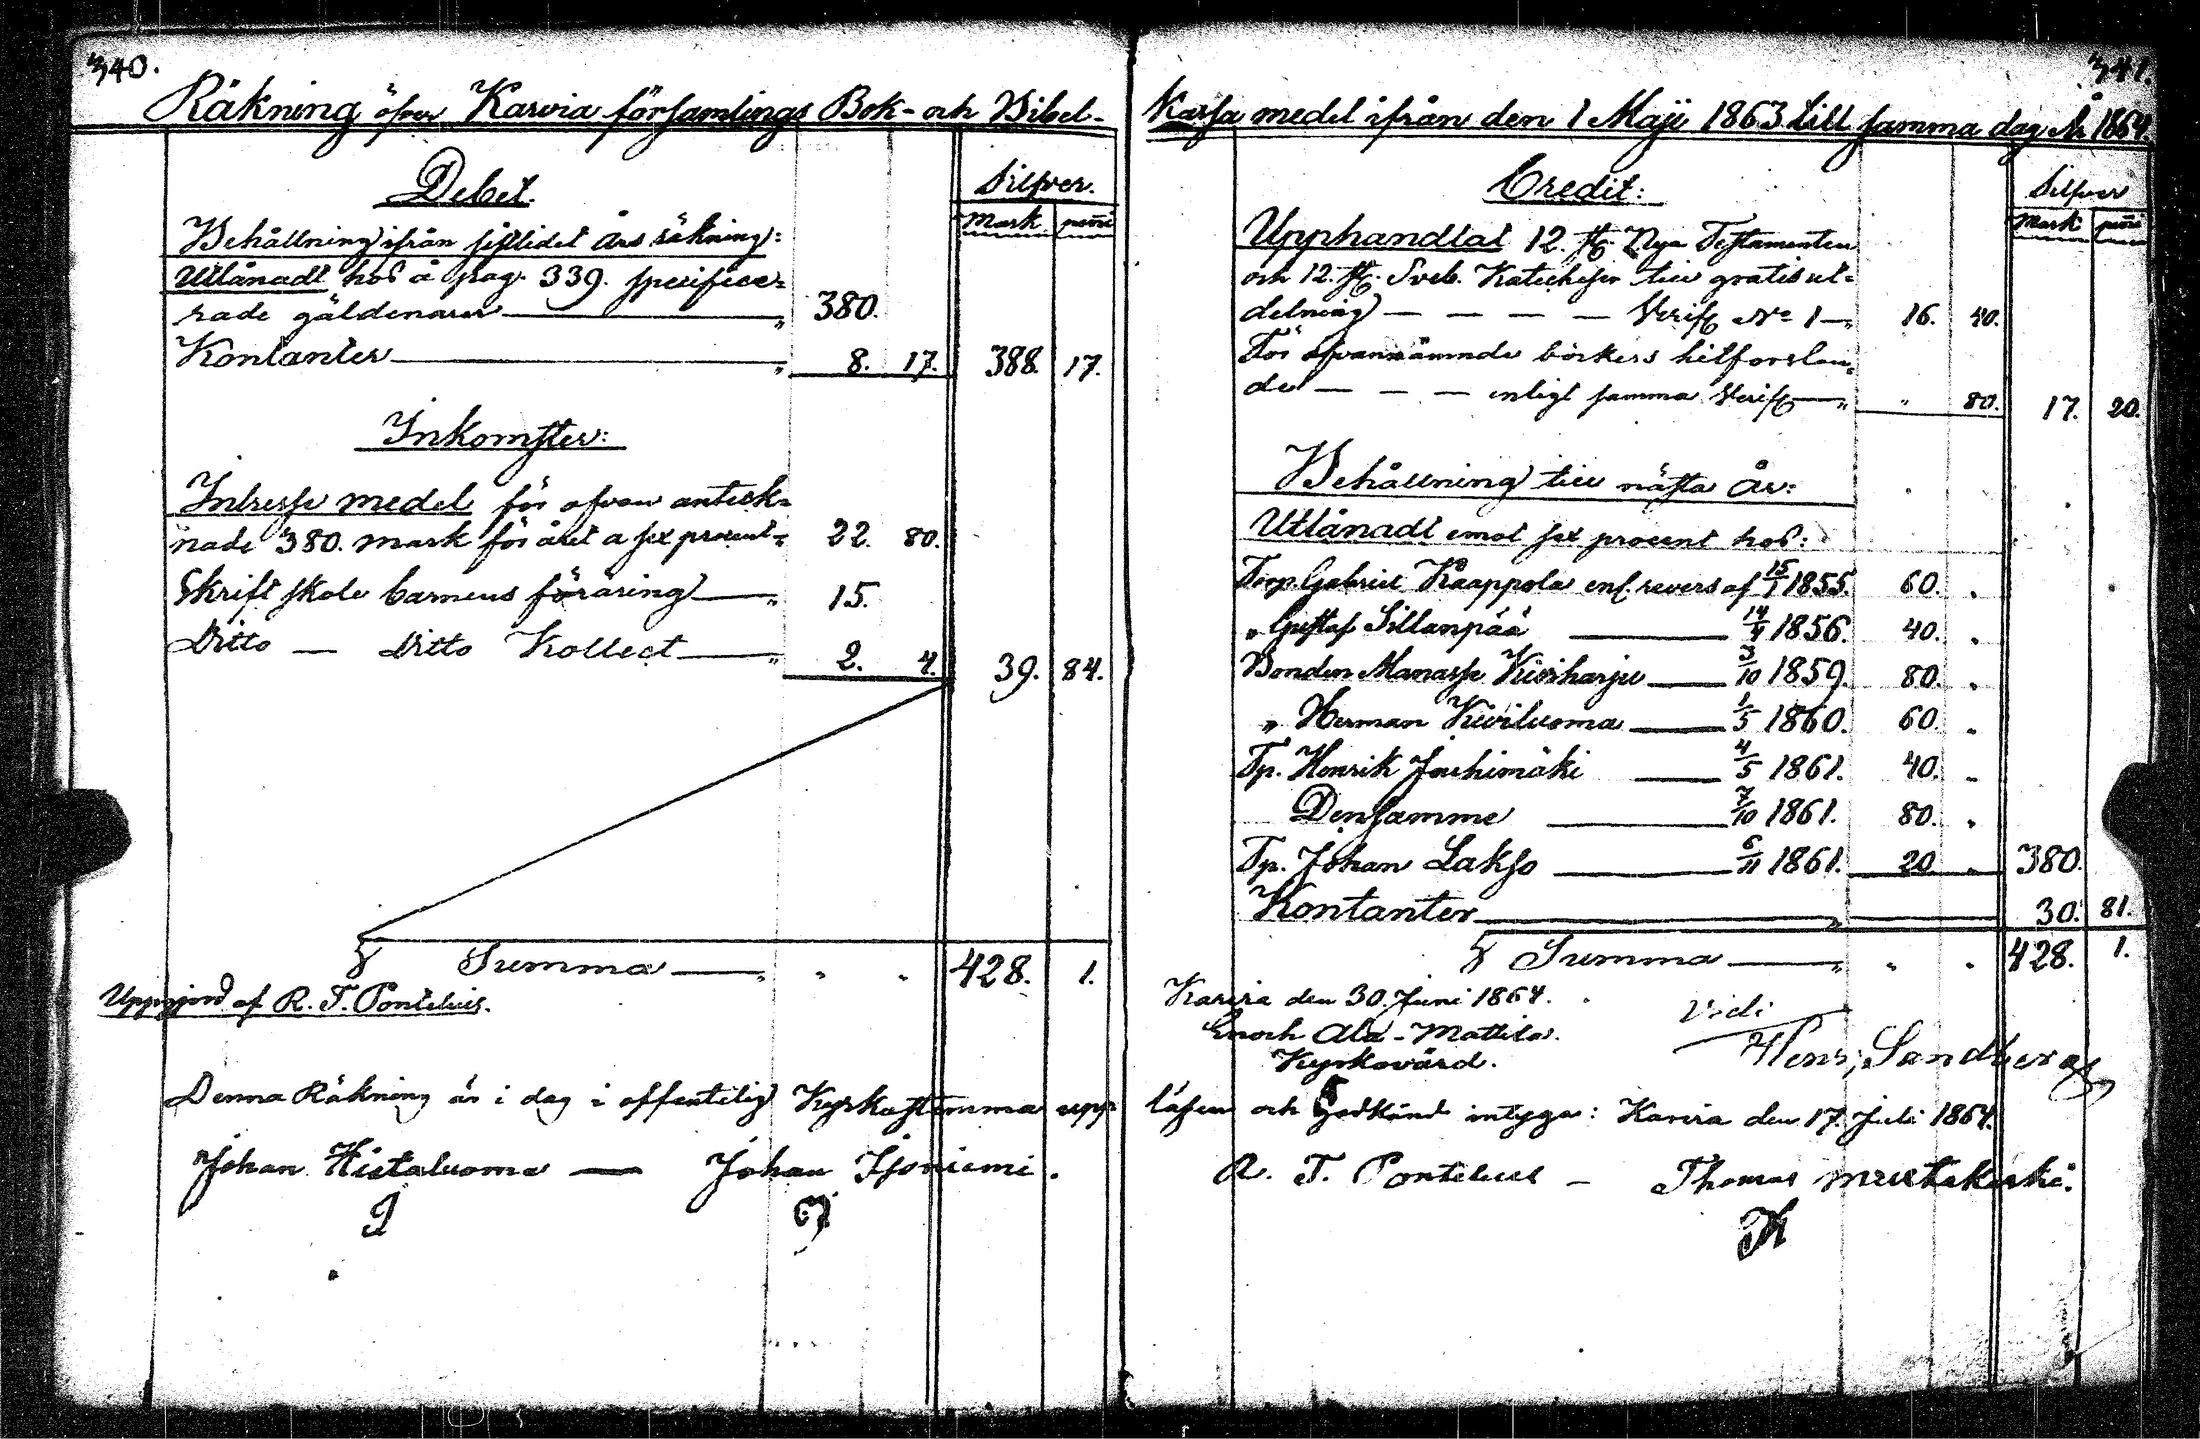 340.
Räkning öfver Karvia församlings Bok- och Bibel-
Debet.
Silfver.
Mark penni
Behållning ifrån sistlidet Års räkning:
Utlånadt hos å pag. 339. specifice-
rade gäldenärer — „ 380.
Kontanter — „ 8. 17. 388. 17.
Inkomster:
Intresse medel för ofvan anteck-
nade 380. mark för året a sex procent „ 22. 80.
Skriftskole barnens föräring — „ 15.
Ditto — Ditto Kollect — „ 2. 4. 39. 84.
Summa — „ „ „ 428. 1.
Uppgjord af R. T. Pontelius.
Denna Räkning är i dag i offentelig Kyrkostemma upp-
Johan Hietaluoma — Johan Isoniemi.
341.
Kassa medel ifrån den 1 Maji 1863 till samma dag År 1864.
Credit:
Silfver
Mark penni
Upphandlat 12. st. Nya Testamenten
och 12. st. Sveb. Katecheser till gratis ut-
delning — — — — Verif. No 1 — „ 16. 40.
För ofvannämnde böckers hitforslan-
de — — — enligt samma Verif. — „ „ 80. 17. 20.
Behållning till nästa År:
Utlånadt emot sex procent hos:
Torp. Gabriel Kaappola enl. revers af 15/1 1855. 60. „
„ Gustaf Sillanpää — 14/4 1856. 40. „
Bonden Manasse Kiviharju — 3/10 1859. 80. „
„ Herman Kiviluoma — 1/5 1860. 60. „
Tp. Henrik Jouhimäki — 4/5 1861. 40. „
Densamme — 7/10 1861. 80. „
Tp. Johan Lakso — 6/11 1861. 20. „ 380.
Kontanter — „ 30. 81.
Summa — „ „ „ 428. 1.
Karvia den 30. Juni 1864.
Vidi
Enoch Ala-Mattila.
Kyrkovärd.
Henr. Sandberg
läsen och godkänd intyga: Karvia den 17. Juli 1864.
R. T. Pontelius — Thomas Mustakoski.